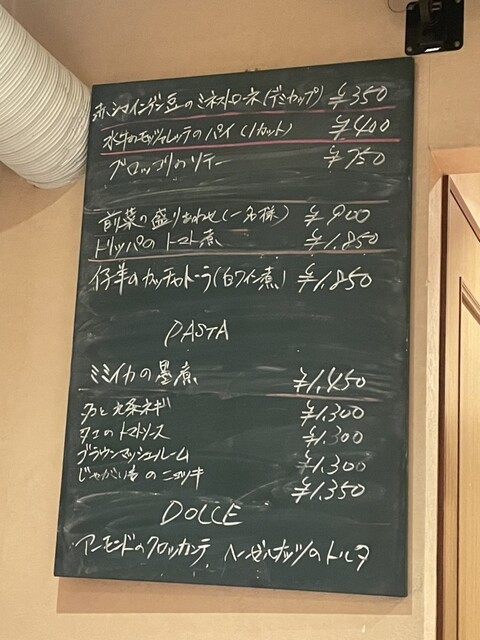 赤いんげん豆のミネストローネ(デミカップ) ¥350
水牛のモッツァレッラのパイ(1カット) ¥400
ブロッコリのソテー ¥750
前菜の盛りあわせ(一名様) ¥900
トリッパのトマト煮 ¥1,850
仔羊のカッチャトーラ(白ワイン煮) ¥1,850
PASTA
ミミイカの墨煮 ¥1,450
九条ネギ ¥1,300
タコのトマトソース ¥1,300
ブラウンマッシュルーム ¥1,300
じゃがいものニョッキ ¥1,350
DOLCE
アーモンドのクロッカンテ ヘーゼルナッツのトルタ